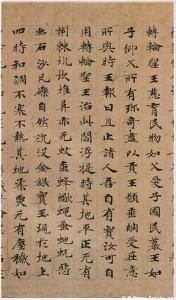 轉輪聖王慈育民物如父愛子國民慕王如
子仰父所有珍奇盡以貢王願垂納受在意
所與時王報曰且止諸人吾自有寶汝可自
用轉輪聖王治此閻浮提時其地平正无有
荊棘坑坎堆阜亦无蚊虻蜂蠍蠅蚤蚖虵惡
虫石沙瓦礫自然沉沒金銀寶玉現於地上
四時和調不寒不熱其地柔耎无有塵穢如